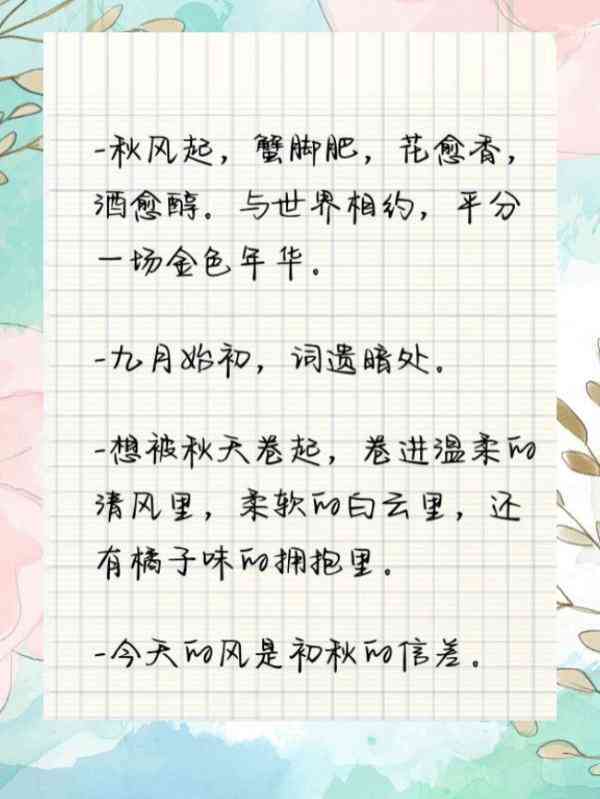 -秋风起，蟹脚肥，花愈香，
酒愈醇。与世界相约，平分
一场金色年华。
-九月始初，词遗暗处。
-想被秋天卷起，卷进温柔的
清风里，柔软的白云里，还
有橘子味的拥抱里。
-今天的风是初秋的信差。